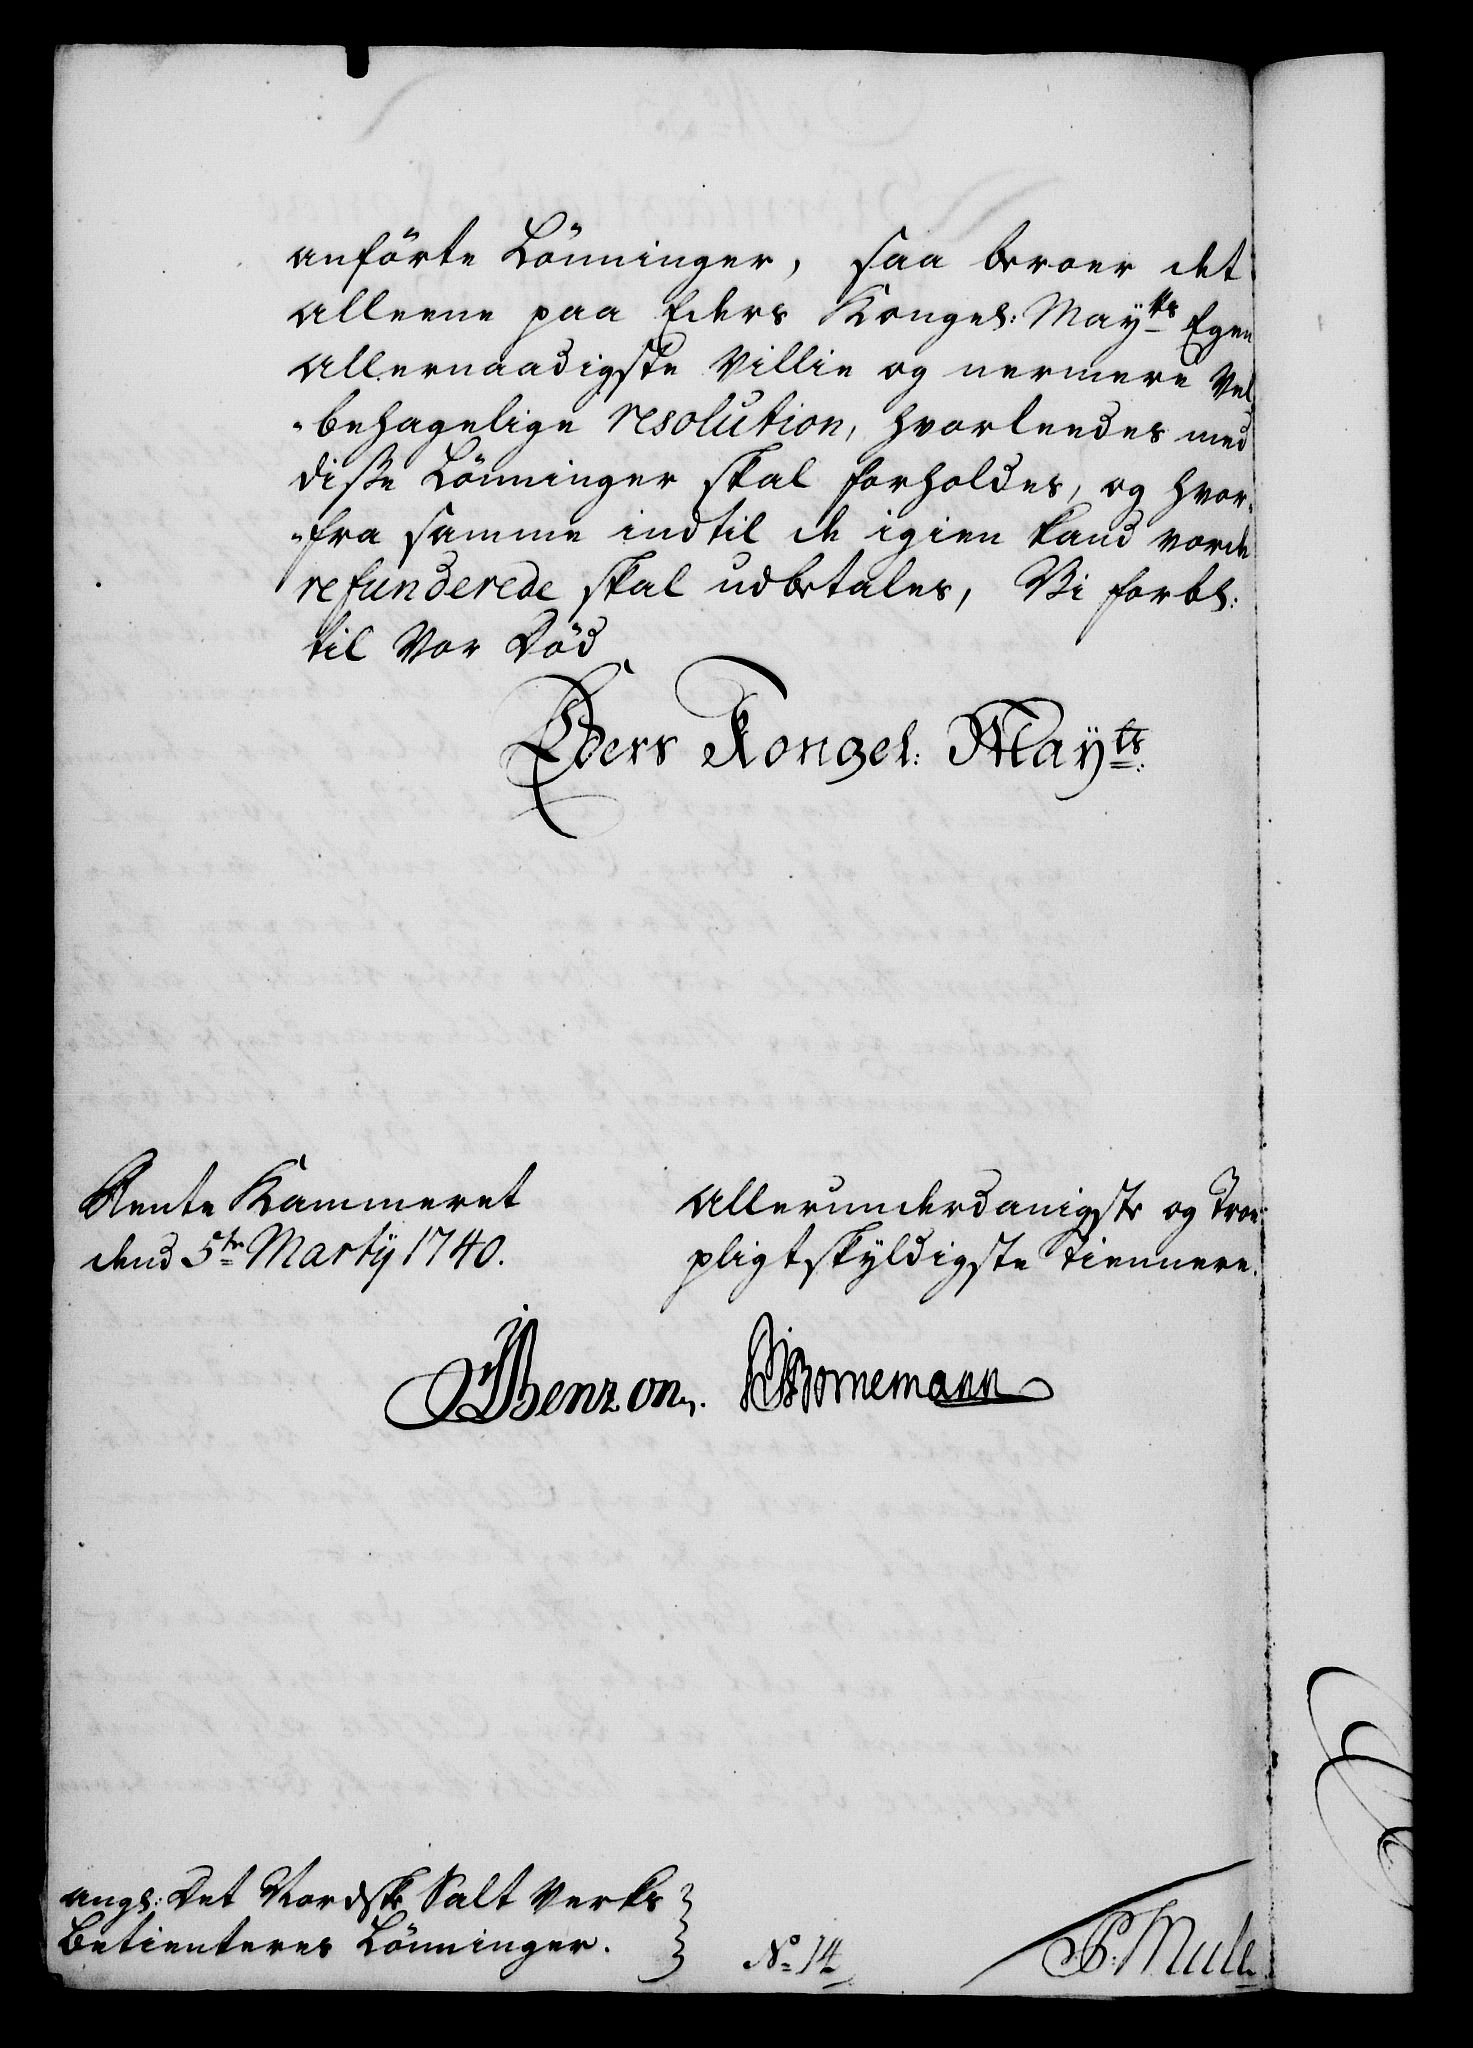 anförte Lönninger, saa beroer det
alleene paa Eders Kongel: May^ts Egen
allernaadigste Villie og nermere Vel
-behagelige resolution, hvorleedes med
disße Lönninger skal forholdes, og hvor-
-fra samme indtil de igien kand vorde
refunderede skal udbetales, Vi forbl:
til Vor Död
Eders Kongel: May^ts:
Rente Kammeret
dend 5^te Martij 1740.
Allerunderdanigste og Troe
pligtskyldigste Tiennere.
Benzon. Bornemann
angl: Det Nordske Salt Verks
Betienteres Lönninger.
No 14
P: Mule